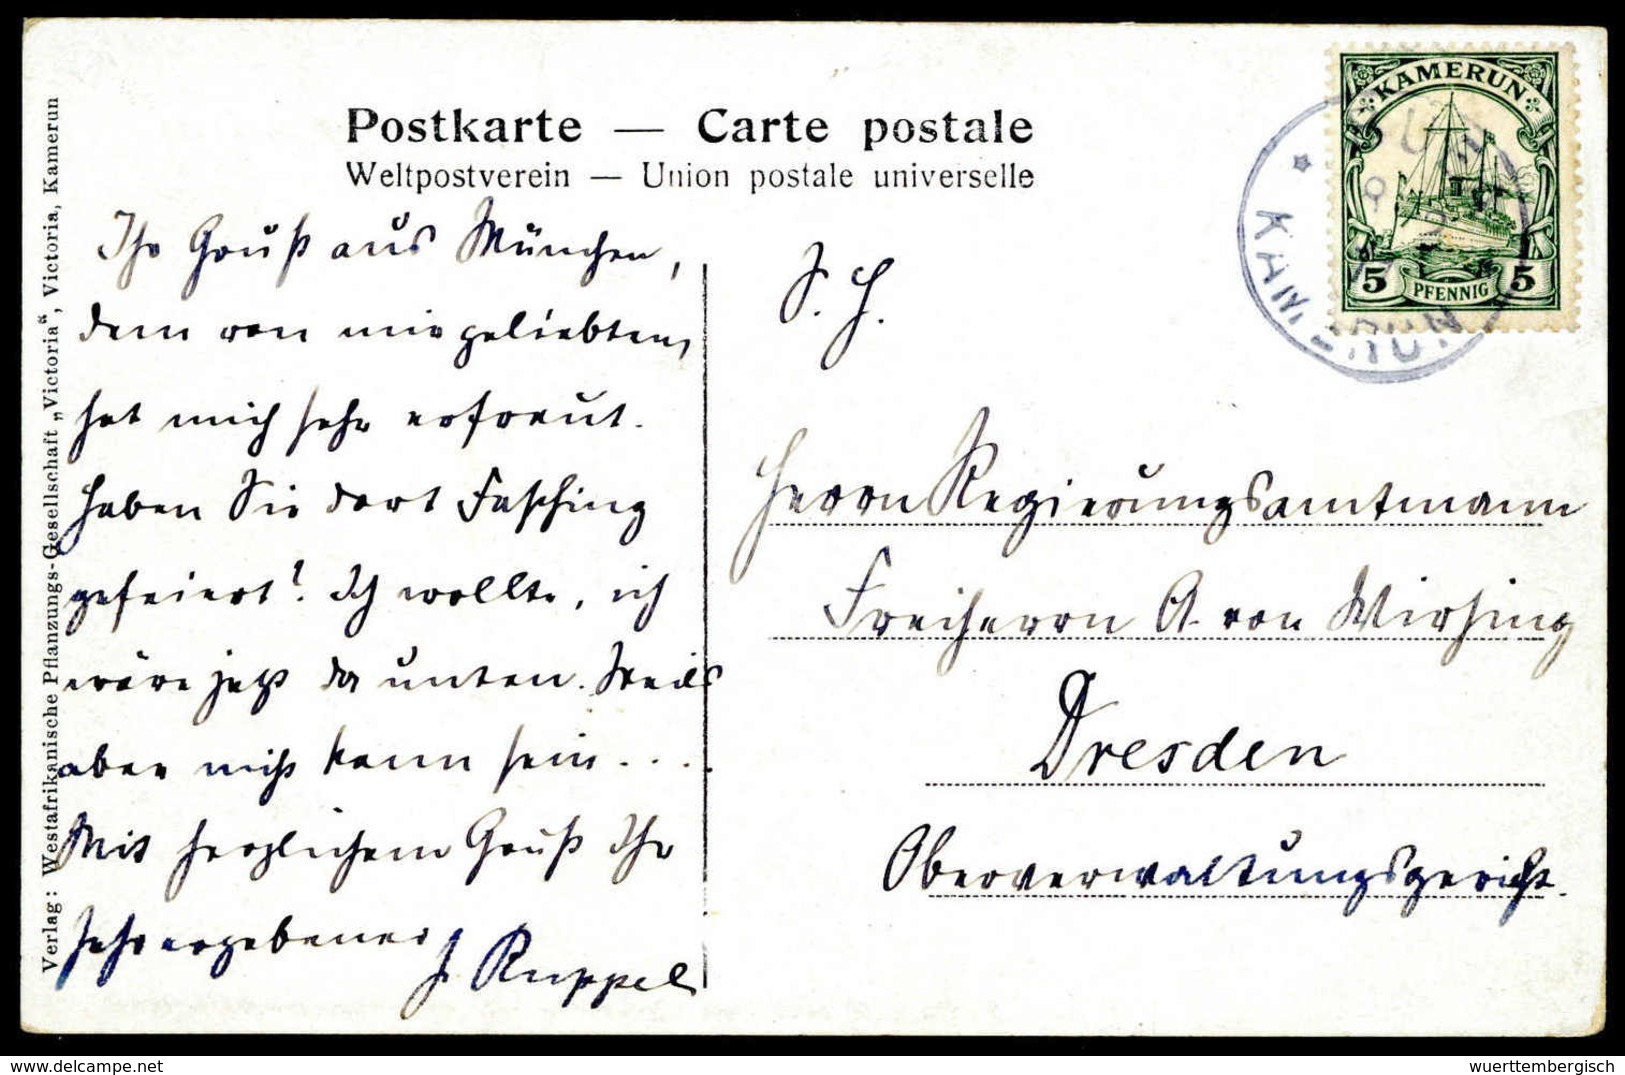 Postkarte — Carte postale
Weltpostverein — Union postale universelle
KAMERUN
5 PFENNIG 5
KAMERUN
Verlag: Westafrikanische Pflanzungs-Gesellschaft „Victoria“, Victoria, Kamerun
Ihr Gruß aus München,
dem von mir geliebten,
hat mich sehr erfreut.
Haben Sie dort Fasching
gefeiert? Ich wollte, ich
wäre jetzt da unten.
aber nicht kann sein....
Mit herzlichem Gruß Ihr
sehr ergebener J. Ruppel
S. H.
Herrn Regierungsamtmann
Freiherrn A. von Wirsing
Dresden
Oberverwaltungsgericht.
wuerttembergisch